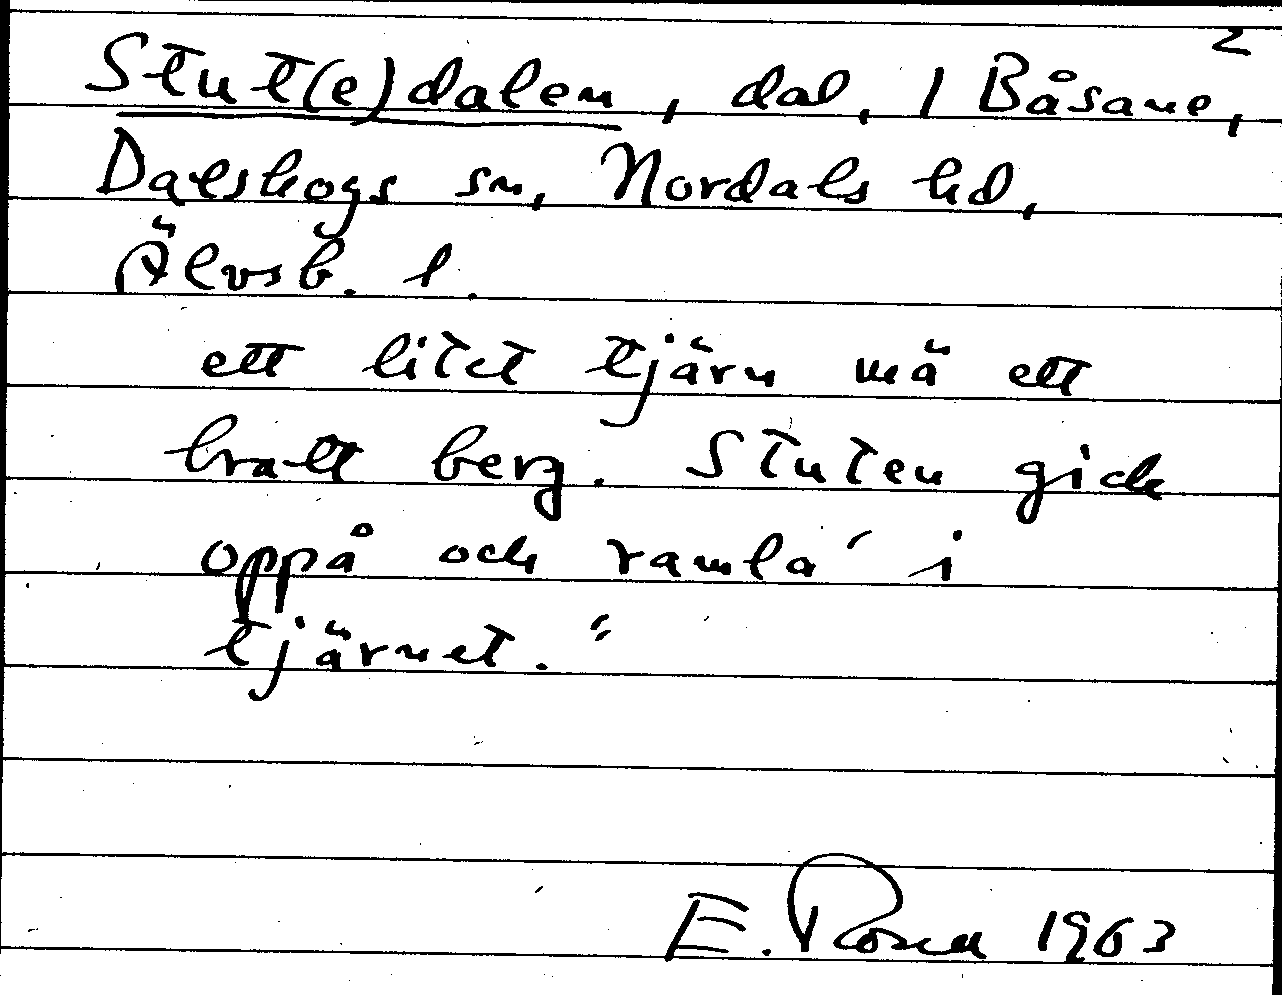 2
Stut(e)dalen, dal, 1 Båsane,
Dalskogs sn, Nordals hd,
Älvsb. l.
ett litet tjärn mä ett
bratt berg. Stuten gick
oppå och ramla' i
tjärnet."
E. Rosen 1963